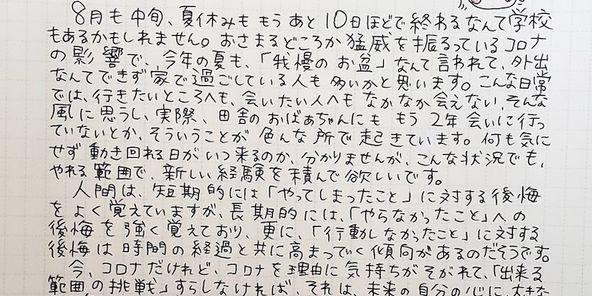 8月も中旬、夏休みももうあと10日ほどで終わるなんて学校
もあるかもしれません。おさまるどころか猛威を振るっているコロナ
の影響で、今年の夏も、「我慢のお盆」なんて言われて、外出
なんてできず家で過ごしている人も多いかと思います。こんな日常
では、行きたいところへも、会いたい人へもなかなか会えない、そんな
風に思うし、実際、田舎のおばあちゃんにももう2年会いに行っ
ていないとか、そういうことが色んな所で起きています。何も気に
せず動き回れる日がいつ来るのか、分かりませんが、こんな状況でも、
やれる範囲で、新しい経験を積んで欲しいです。
人間は、短期的には「やってしまったこと」に対する後悔
をよく覚えていますが、長期的には、「やらなかったこと」への
後悔を強く覚えており、更に、「行動しなかったこと」に対する
後悔は時間の経過と共に高まっていく傾向があるのだそうです。
今、コロナだけれど、コロナを理由に気持ちがそがれて、「出来る
範囲の挑戦」すらしなければ、それは、未来の自分の心に、大きな